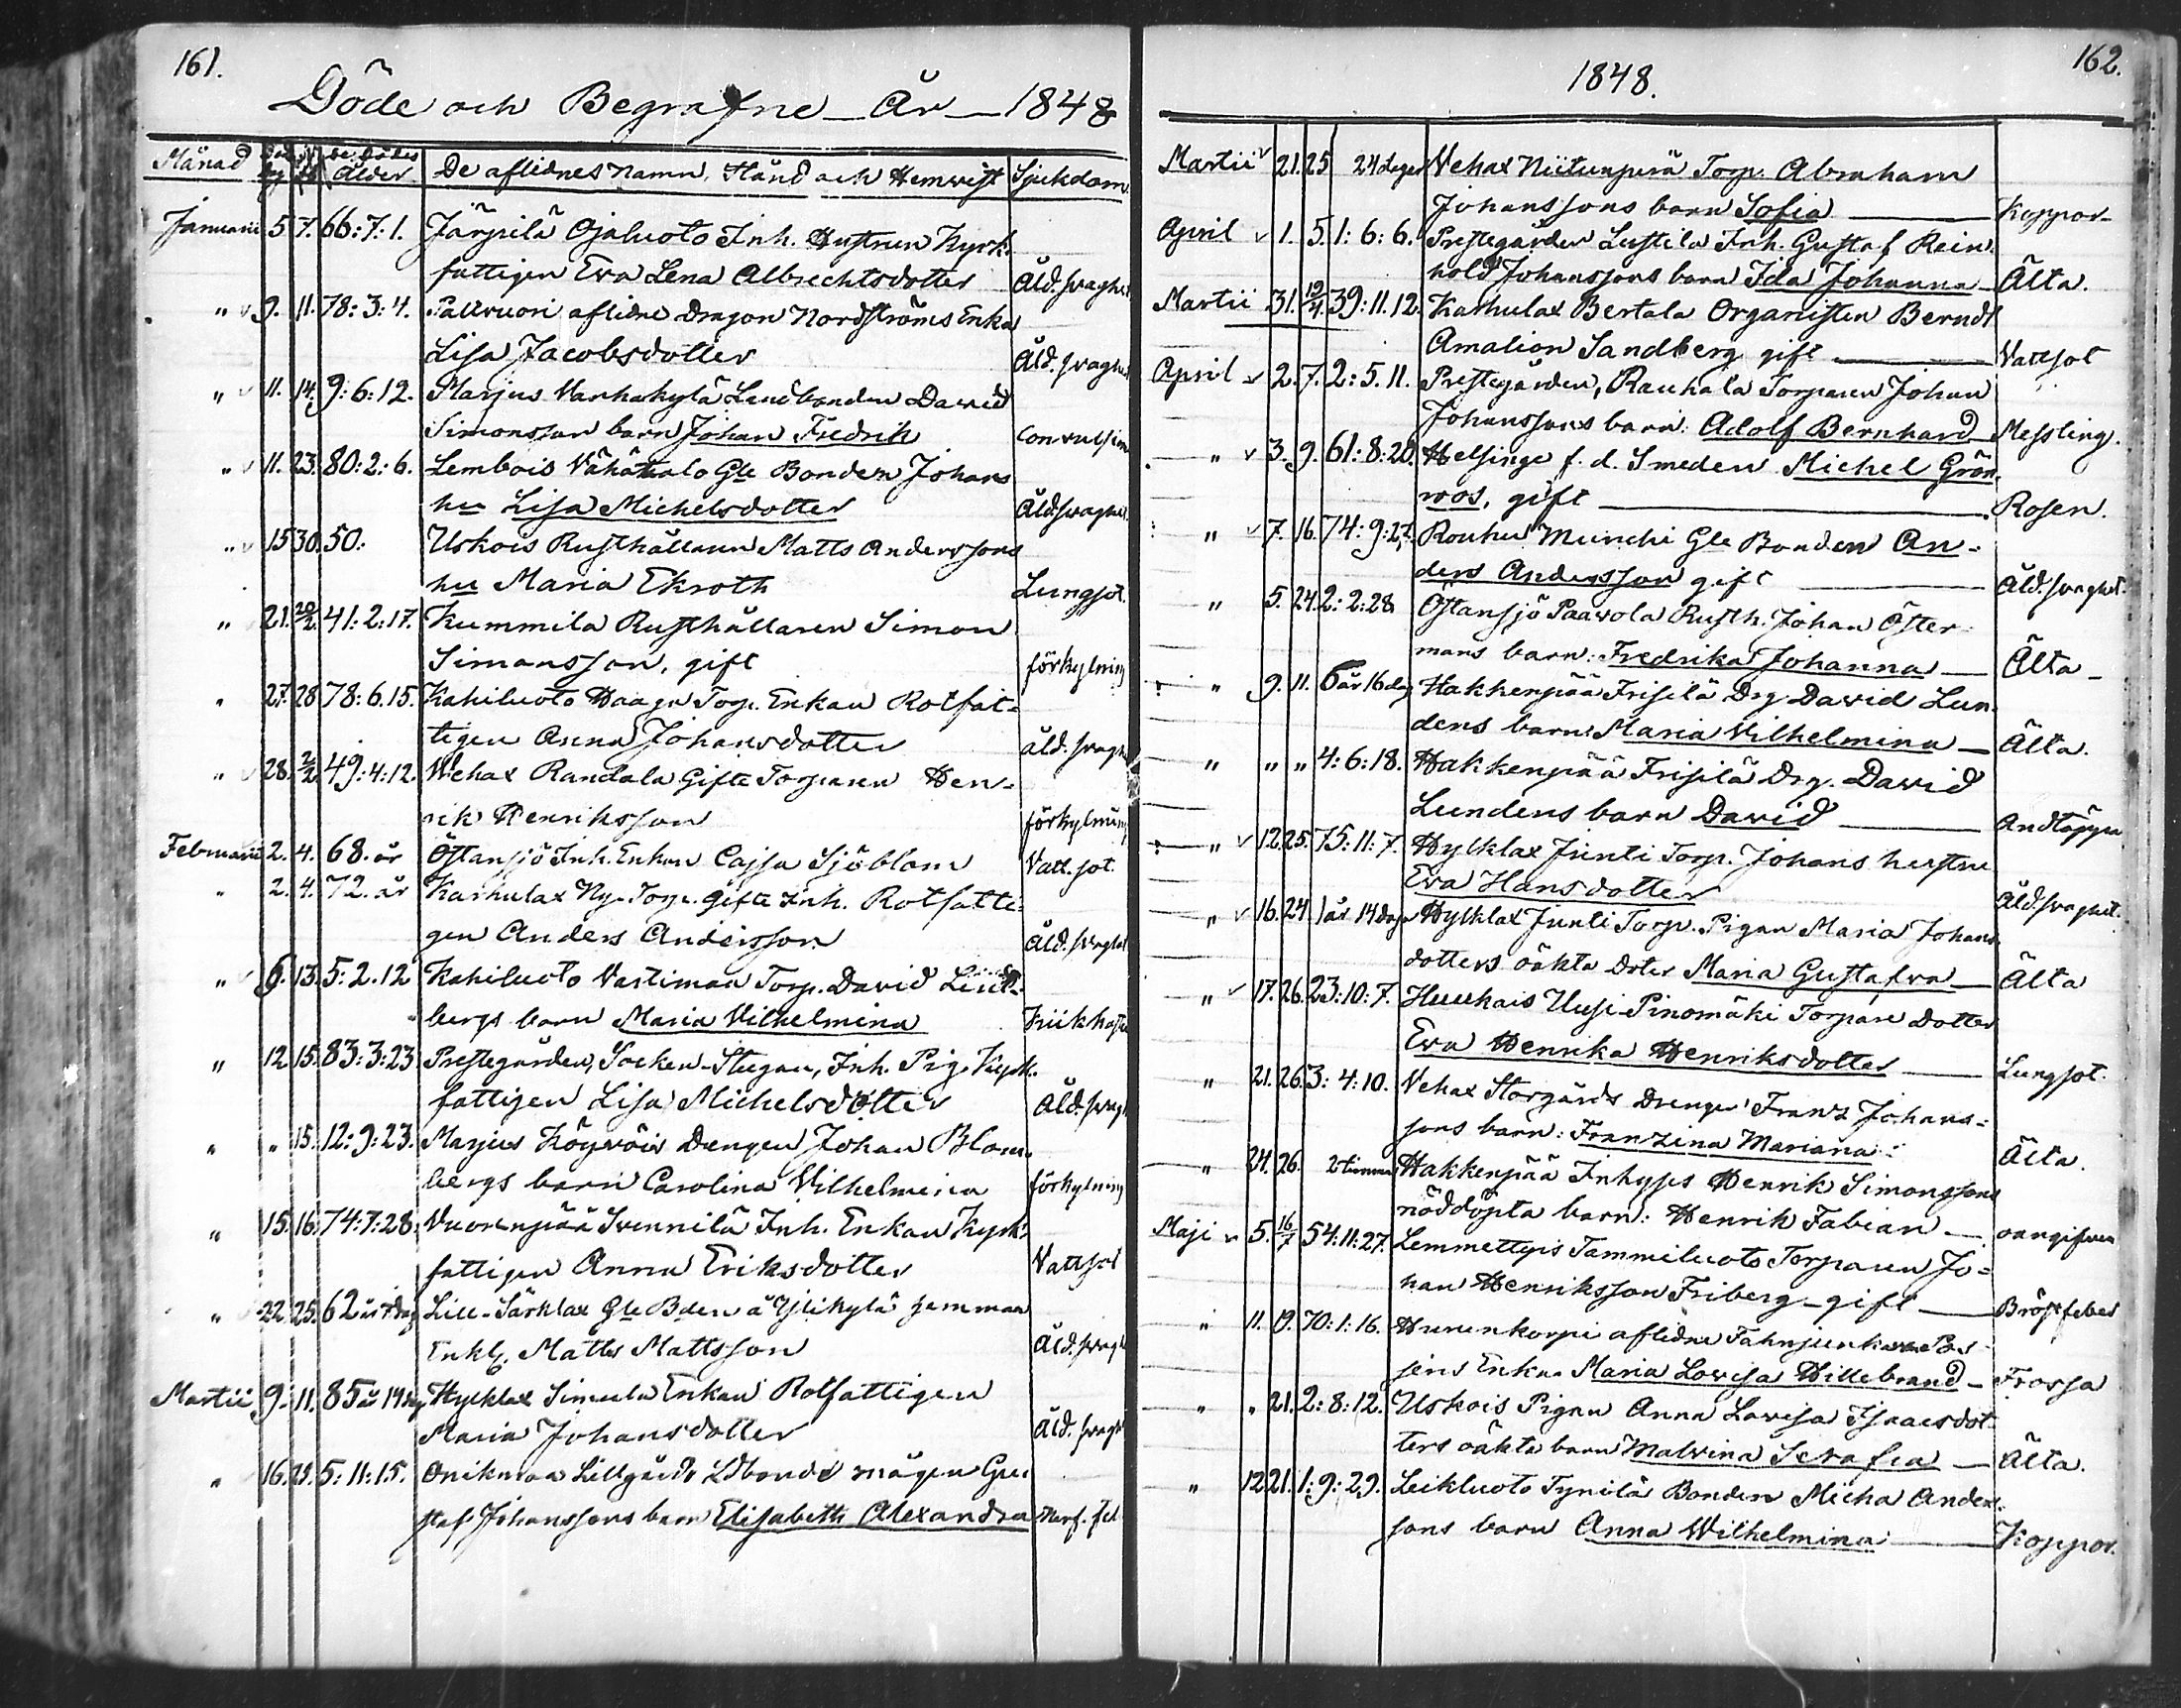 161.
Döde och Begrafne År 1848
Månad De dödes Ålder De aflidnes namn, Stånd och Hemvist Sjukdom
Januarii 5. 7. 66: 7: 1. Järpilä Ojaluoto Inh. Hustrun Kyrk-
fattigen Eva Lena Albrechtsdotter Åld. svaghet
" 9. 11. 78: 3: 4. Pallvuori aflidne Dragon Nordströms Enka
Lisa Jacobsdotter Åld. svaghet
" 11. 14. 9: 6: 12. Marjus Vanhakylä Landbonden David
Simonsson barn Johan Fredrik Convulsion
" 11. 23. 80: 2: 6. Lembois Vähätalo Gle Bonden Johans
hu Lisa Michelsdotter Åld. svaghet
" 15 30. 50: Uskois Rusthållaren Matts Anderssons
hu Maria Ekroth Lungsot.
" 21. 20/2. 41: 2: 17. Kummila Rusthållaren Simon
Simonsson, gift förkylning
" 27. 28 78: 6. 15. Kahiluoto Haaga Torp. Enkan Rotfat-
tigen Anna Johansdotter åld. svaghet
" 28. 2/2. 49: 4: 12. Vehax Randala Gifte Torparen Hen-
rik Henriksson förkylning
Februarii 2. 4. 68. år Östansjö Inh. Enkan Cajsa Sjöblom Vatt. sot.
" 2. 4. 72. år Karhulax Ny-Torp. Gifte Inh. Rotfatti-
gen Anders Andersson Åld. svaghet
" 6. 13. 5: 2. 12 Kahiluoto Vartiman Torp. David Lind-
bergs barn Maria Vilhelmina Kikhosta
" 12. 15. 83: 3: 23 Prestegården, Socken-Stugan, Inh. Pig. Kyrk.
fattigen Lisa Michelsdotter Åld. svagh
" " 15. 12: 9: 23. Marjus Köyvöis Drengen Johan Blom-
bergs barn Carolina Vilhelmina förkylning
" 15. 16. 74: 7: 28. Vuorenpää Svennilä Inh. Enkan Kyrk-
fattigen Anna Eriksdotter Vattsot
" 22. 25. 62 år 7 dag Lill-Särklax Gle Bden å Ylikylä hemman
Enkl. Matts Mattsson Åld. svagh
Martii 9. 11. 85 år 14 dag Hylklax Simula Enkan Rotfattigen
Maria Johansdotter Åld. svagh
" 16. 25. 5: 11: 15. Onikmaa Lillgårds Ldbonde mågen Gu-
staf Johanssons barn Elisabeth Alexandra Nerf. feb
162.
1848.
Martii 21. 25 24 dagar Vehax Niitunperä Torp. Abraham
Johanssons barn Sofia Koppor
April 1. 5. 1: 6: 6. Prestegården Lustila Inh. Gustaf Rein-
hold Johanssons barn Ida Johanna Älta.
Martii 31. 12/4. 39: 11. 12. Karhulax Bertala Organisten Berndt
Amalion Sandberg gift Vattsot
April 2. 7. 2: 5. 11. Prestegården, Rauhala Torparen Johan
Johanssons barn: Adolf Bernhard Messling.
" 3. 9. 61: 8: 20. Helsinge f. d. Smeden Michel Grön-
roos, gift Rosen.
" 7. 16. 74: 9: 27. Rouhu Muinchi Gle Bonden An-
ders Andersson gift Åld. svaghet.
" 5. 24. 2: 2: 28 Östansjö Paavola Rusth. Johan Öster-
mans barn: Fredrika Johanna Älta
" 9. 11. 6 år 16 dag Hakkenpää Frisilä Drg David Lun-
dens barn: Maria Vilhelmina Älta.
" " " 4: 6: 18. Hakkenpää Frisilä Drg. David
Lundens barn David Andtäppa
" 12. 25. 75: 11: 7. Hylklax Junti Torp. Johans hustru
Eva Hansdotter Åld. svaghet.
" 16. 24. 1 år 14 dagar Hylklax Junti Torp. Pigan Maria Johans-
dotters oäkta doter Maria Gustafva Älta
" 17. 26. 23: 10: 7. Huukais Uusi-Pinomäki Torpare dotter
Eva Henrika Henriksdotter Lungsot.
" 21. 26. 3: 4: 10. Vehax Storgårds Drengen Franz Johans-
sons barn: Franzina Mariana Älta.
" 24. 26. 2 timmar Hakkenpää Inhyses Henrik Simonssons
nöddöpta barn: Henrik Fabian oangifven
Maji 5. 16/7 54: 11: 27. Lemmettyis Tammiluoto Torparen Jo-
han Henriksson Friberg gift Bröstfeber
" 11. 19. 70: 1: 16. Hurunkorpi aflidne Fahnjunkaren Por-
sens Enka Maria Lovisa Hillebrand Frossa
" " 21. 2: 8: 12. Uskois Pigan Anna Lovisa Isracsdot-
ters oäkta barn Malvina Serafia Älta.
" 12 21. 1: 9: 29. Leikluoto Tynilä Bonden Micha Anders-
sons barn Anna Wilhelmina Koppor.